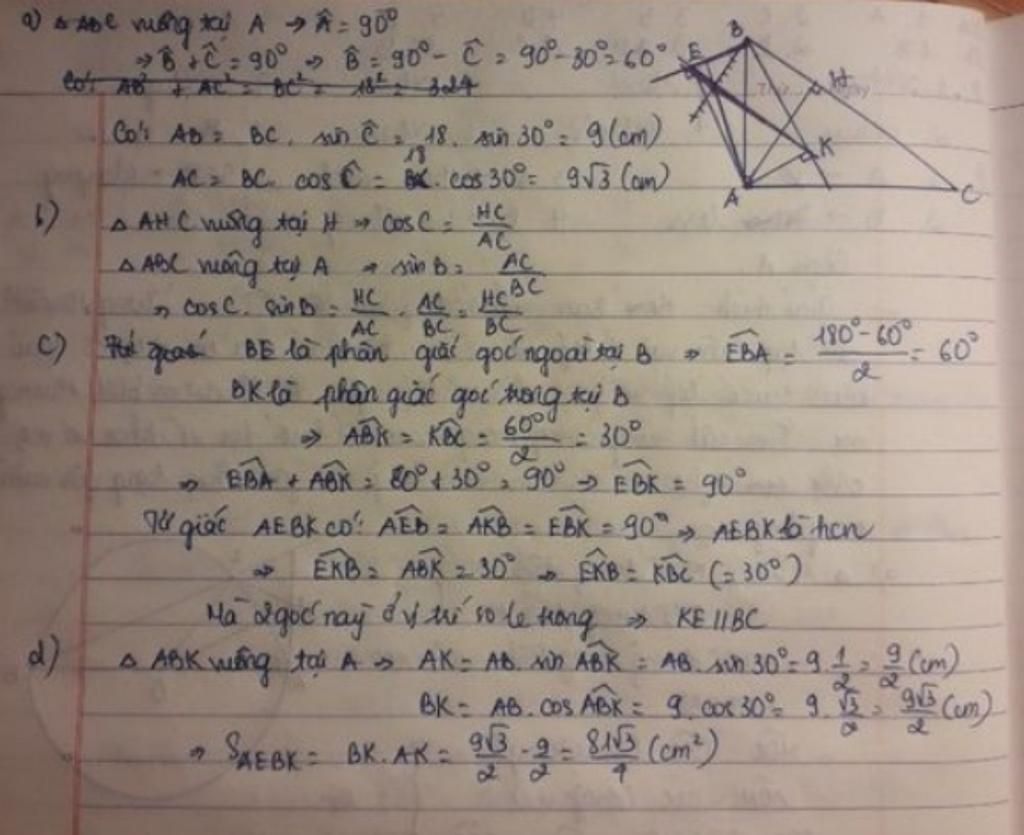 a) △ ABC vuông tại A → Â = 90°
⇒ B̂ + Ĉ = 90° ⇒ B̂ = 90° - Ĉ = 90° - 30° = 60°
Có: AB² + AC² = BC² = 18² = 324
Có: AB = BC. sin Ĉ = 18. sin 30° = 9 (cm)
AC = BC. cos Ĉ = 18. cos 30° = 9√3 (cm)
b) △ AHC vuông tại H ⇒ cos C = HC/AC
△ ABC vuông tại A ⇒ sin B = AC/BC
⇒ cos C. sin B = HC/AC . AC/BC = HC/BC
c) BE là phân giác góc ngoài tại B ⇒ EBA = (180° - 60°)/2 = 60°
BK là phân giác góc trong tại B
⇒ ABK = KBC = 60°/2 = 30°
⇒ EBA + ABK = 60° + 30° = 90° ⇒ EBK = 90°
Tứ giác AEBK có: AEB = AKB = EBK = 90° ⇒ AEBK là hcn
⇒ EKB = ABK = 30° ⇒ EKB = KBC (= 30°)
Mà 2 góc này ở vị trí so le trong ⇒ KE // BC
d) △ ABK vuông tại A ⇒ AK = AB. sin ABK = AB. sin 30° = 9 1/2 = 9/2 (cm)
BK = AB. cos ABK = 9. cos 30° = 9. √3/2 = 9√3/2 (cm)
⇒ S AEBK = BK. AK = 9√3/2 . 9/2 = 81√3/4 (cm²)
B
E
H
K
A
C